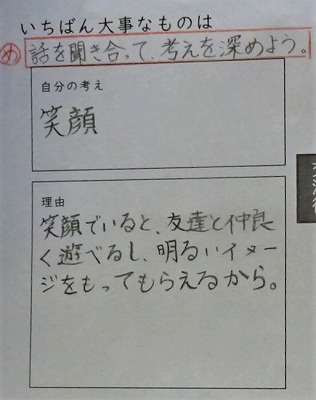 いちばん大事なものは
め 話を聞き合って、考えを深めよう。
自分の考え
笑顔
理由
笑顔でいると、友達と仲良
く遊べるし、明るいイメー
ジをもってもらえるから。